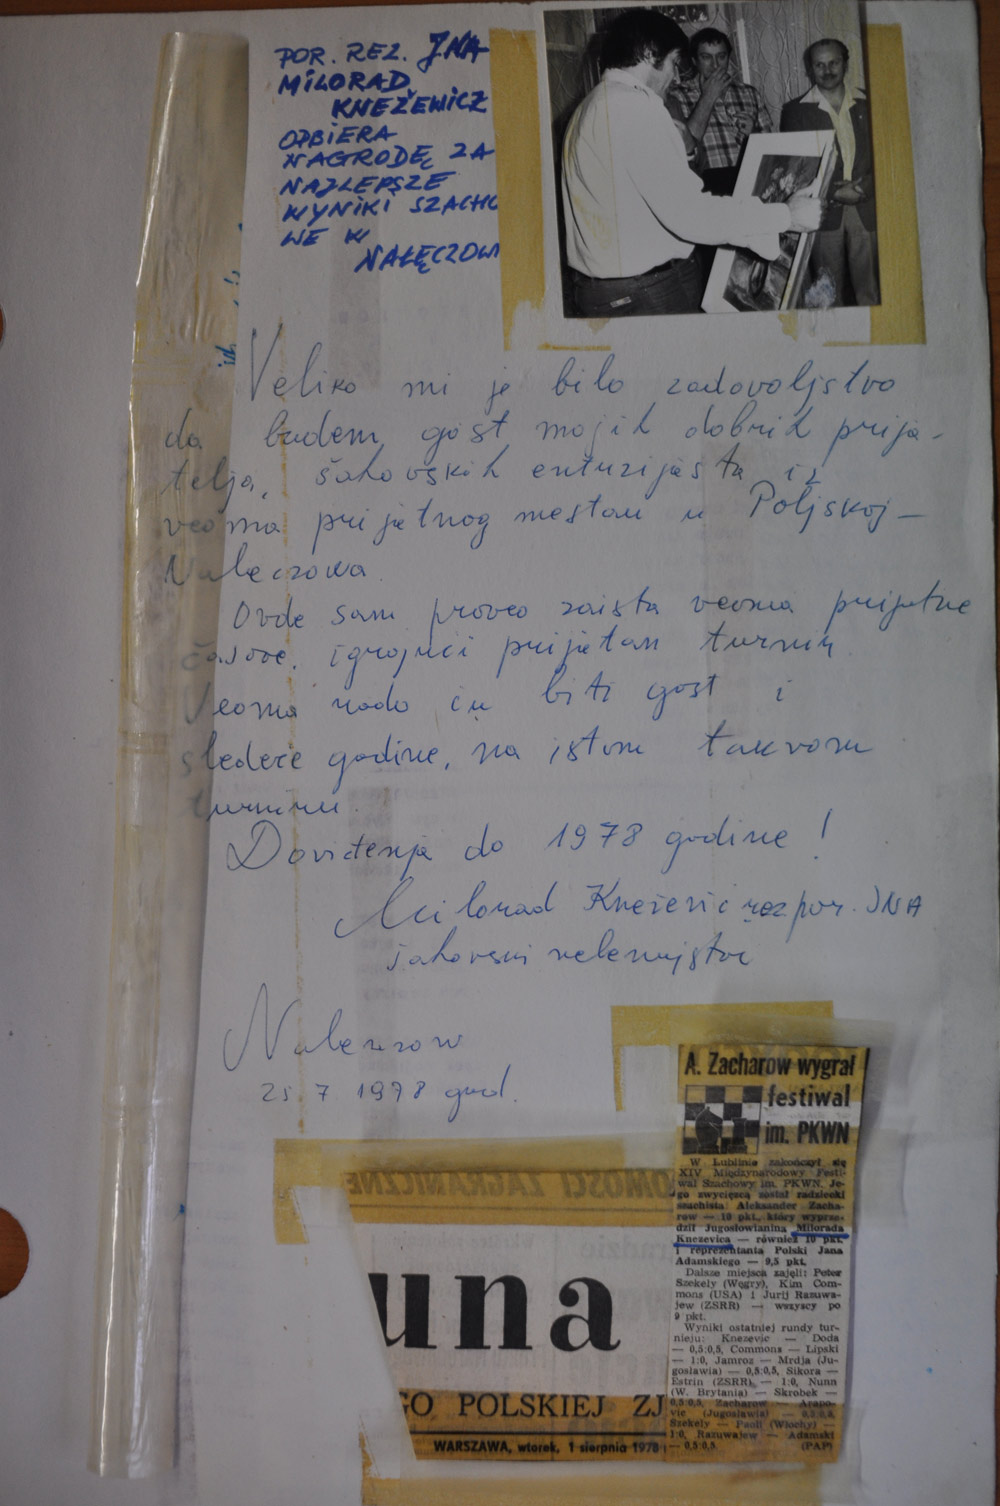 POR. REZ. JNA
MILORAD
KNEŽEWICZ
ODBIERA
NAGRODĘ ZA
NAJLEPSZE
WYNIKI SZACHO
WE W
NAŁĘCZOW
Veliko mi je bilo zadovoljstvo
da budem gost mojih dobrih prija-
telja, šahovskih entuzijasta iz
veoma prijatnog mestau u Poljskoj —
Nalečzowa.
Ovde sam proveo zaista veoma prijatne
časove, igrajući prijatan turnir.
Veoma rado ću biti gost i
sledeće godine, na istom takvom
turniru.
Doviđenja do 1978 godine!
Milorad Knežević rez por. JNA
šahovski velemajstor
Naleczow
25 7 1978 god.
A. Zacharow wygrał
festiwal
im. PKWN
W Lublinie zakończył się
XIV Międzynarodowy Festi-
wal Szachowy im. PKWN. Je-
go zwycięzcą został radziecki
szachista Aleksander Zacha-
row — 10 pkt., który wyprze-
dził Jugosłowianina Milorada
Knezevica — również 10 pkt.
i reprezentanta Polski Jana
Adamskiego — 9,5 pkt.
Dalsze miejsca zajęli: Peter
Szekely (Węgry), Kim Com-
mons (USA) i Jurij Razuwa-
jew (ZSRR) — wszyscy po
9 pkt.
Wyniki ostatniej rundy tur-
nieju: Knezevic — Doda
— 0,5:0,5, Commons — Lipski
— 1:0, Jamroz — Mrdja (Ju-
gosławia) — 0,5:0,5, Sikora —
Estrin (ZSRR) — 1:0, Nunn
(W. Brytania) — Skrobek —
0,5:0,5, Zacharow — Arapo-
vic (Jugosławia) — 0,5:0,5,
Szekely — Paoli (Włochy) —
1:0, Razuwajew — Adamski
— 0,5:0,5. (PAP)
OMOŚCI ZAGRANICZNE
una
GO POLSKIEJ ZJ
WARSZAWA, wtorek, 1 sierpnia 1978